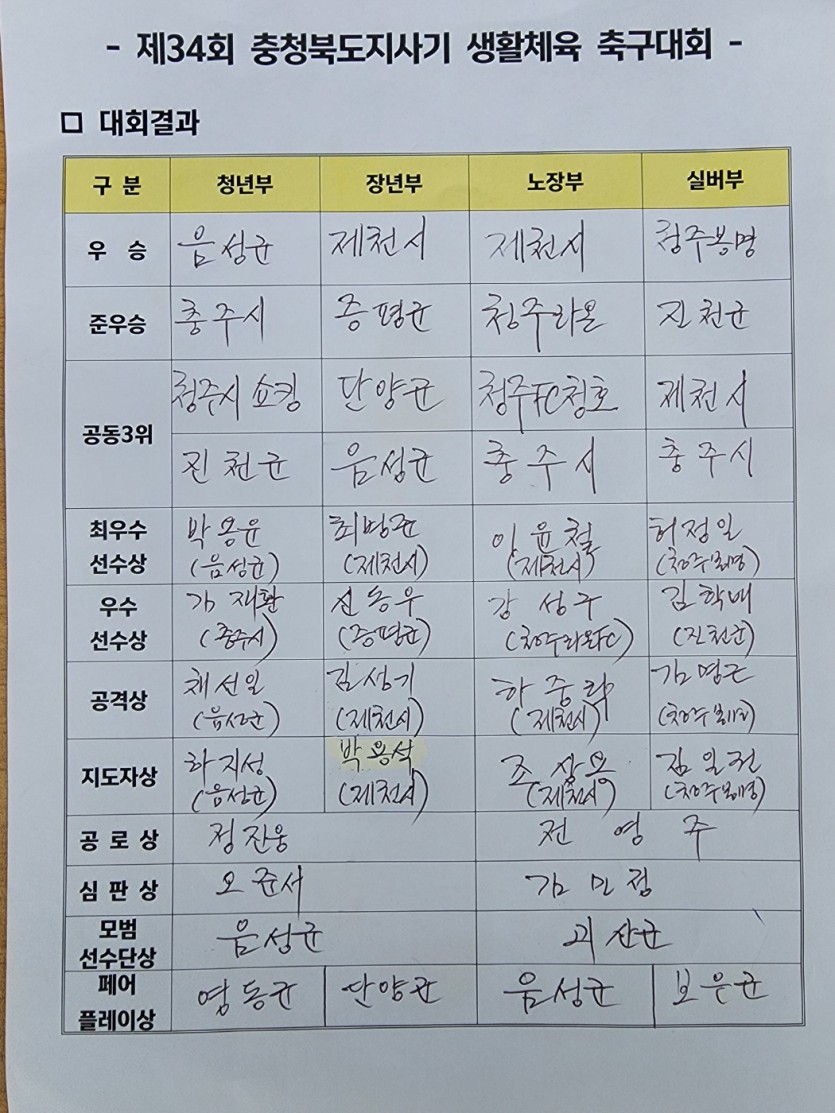 - 제34회 충청북도지사기 생활체육 축구대회 -
□ 대회결과
구 분 청년부 장년부 노장부 실버부
우 승 음성군 제천시 제천시 청주봉명
준우승 충주시 증평군 청주라온 진천군
공동3위
청주시 쇼킹 단양군 청주FC청호 제천시
진천군 음성군 충주시 충주시
최우수
선수상
박용윤 이윤철 허정일
(음성군) (제천시) (제천시) (청주봉명)
우수
선수상
김재환 신동우 강성구 김학배
(충주시) (증평군) (청주라온FC) (진천군)
공격상
채선일 김성기 하중락 김명근
(음성군) (제천시) (제천시) (청주봉명)
지도자상
하지성 박용석 조상용
(음성군) (제천시) (제천시) (청주봉명)
공 로 상 정찬웅 전영주
심 판 상 오준서 김민정
모범
선수단상
음성군 괴산군
페어
플레이상
영동군 단양군 음성군 보은군